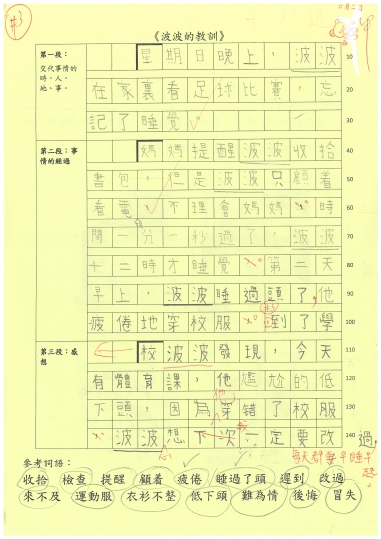 《波波的教訓》
第一段：
交代事情的
時、人、
地、事。
星期日晚上，波波
10
在家裏看足球比賽，忘
20
記了睡覺。
30
第二段：事
情的經過
媽媽提醒波波收拾
40
書包，但是波波只顧着
50
看電
不理會媽媽
時
60
間一分一秒過了，波波
70
十二時才睡覺
第二天
80
早上，波波睡過頭了，他
90
疲倦地穿校服
到了學
100
第三段：感
想
校
波波發現，今天
110
有體育課，他尷尬的低
120
下頭，因為穿錯了校服
他
130
波波想下次一定要改過。
140
每天都要早睡早
起。
參考詞語：
收拾 檢查 提醒 顧着 疲倦 睡過了頭 遲到 改過
來不及 運動服 衣衫不整 低下頭 難為情 後悔 冒失